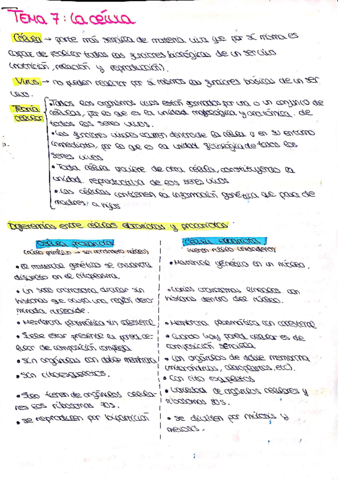 TEMA 7: La célula
Célula → parte más sencilla de materia viva que por sí misma es
capaz de realizar todas las funciones biológicas de un ser vivo
(nutrición, relación y reproducción).
Virus → no pueden realizar por sí mismos las funciones básicas de un ser
vivo.
Teoría celular
• Todos los organismos vivos están formados por una o un conjunto de
células, por lo que es la unidad morfológica y anatómica de
todos los seres vivos.
• Las funciones vitales ocurren dentro de la célula o en su entorno
inmediato, por lo que es la unidad fisiológica de todos los
seres vivos
• Toda célula proviene de otra célula, constituyendo la
unidad reproductiva de los seres vivos
• Las células contienen la información genética que pasa de
madres a hijos
Diferencias entre células eucariotas y procariotas
Célula procariota
(núcleo primitivo → sin verdadero núcleo)
• El material genético se encuentra
disperso en el citoplasma.
• Un solo cromosoma circular sin
histonas que ocupa una región deno-
minada nucleoide.
• Membrana plasmática sin colesterol
• Suele estar presente la pared celu-
lar de composición compleja
• Sin orgánulos con doble membrana
• Sin citoesqueleto.
• Solo tienen de orgánulos celula-
res los ribosomas 70s.
• Se reproducen por bipartición
Célula eucariota
(tienen núcleo verdadero)
• Material genético en un núcleo.
• Varios cromosomas lineales con
histona dentro del núcleo.
• Membrana plasmática con colesterol
• Cuando hay pared celular es de
composición sencilla
• Con orgánulos de doble membrana
(mitocondrias, cloroplastos, etc).
• Con cito esqueleto
• Variedad de orgánulos celulares y
ribosomas 80s.
• Se dividen por mitosis y
meiosis.